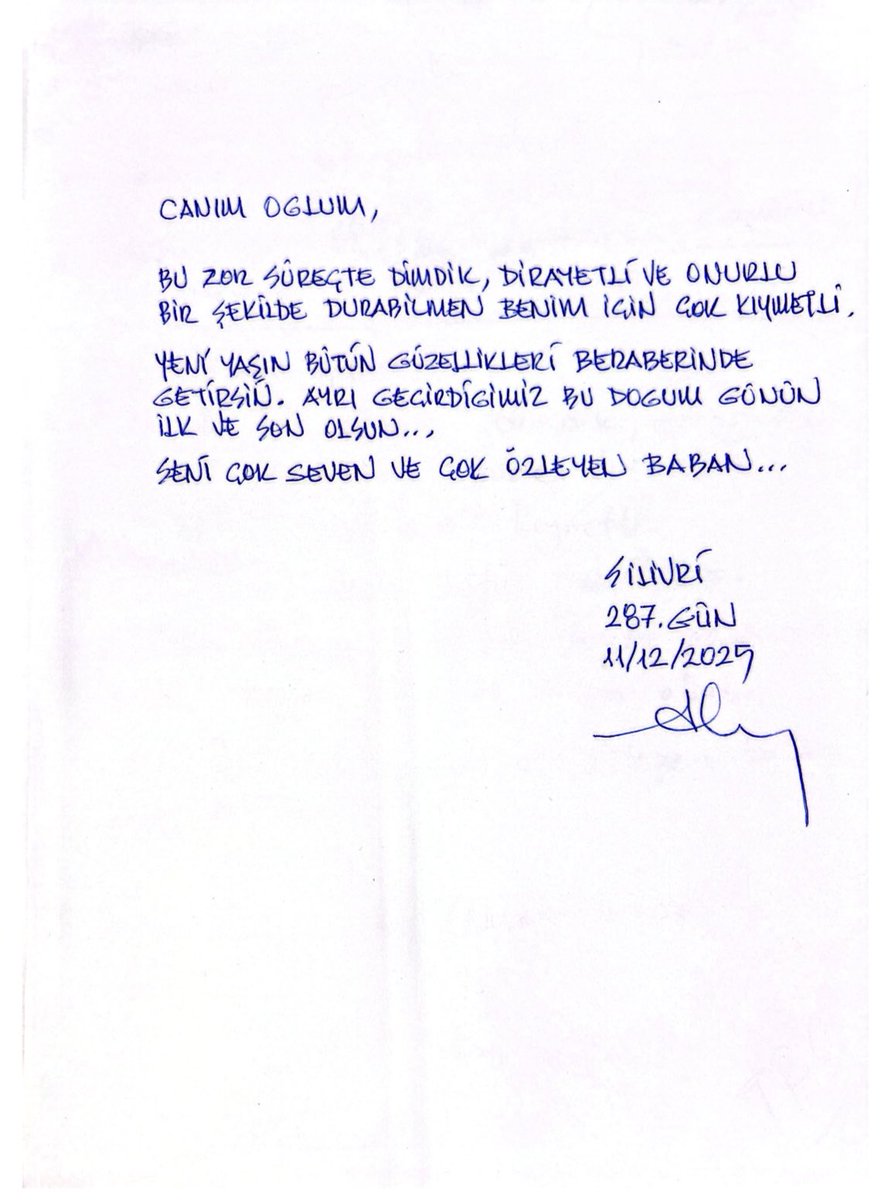 CANIM OGLUM,
BU ZOR SÜREÇTE DİMDİK, DİRAYETLİ VE ONURLU
BİR ŞEKİLDE DURABİLMEN BENİM İÇİN ÇOK KIYMETLİ.
YENİ YAŞIN BÜTÜN GÜZELLİKLERİ BERABERİNDE
GETİRSİN. AYRI GEÇİRDİGİMİZ BU DOGUM GÜNÜN
İLK VE SON OLSUN...
SENİ ÇOK SEVEN VE ÇOK ÖZLEYEN BABAN...
SİLİVRİ
287.GÜN
11/12/2025